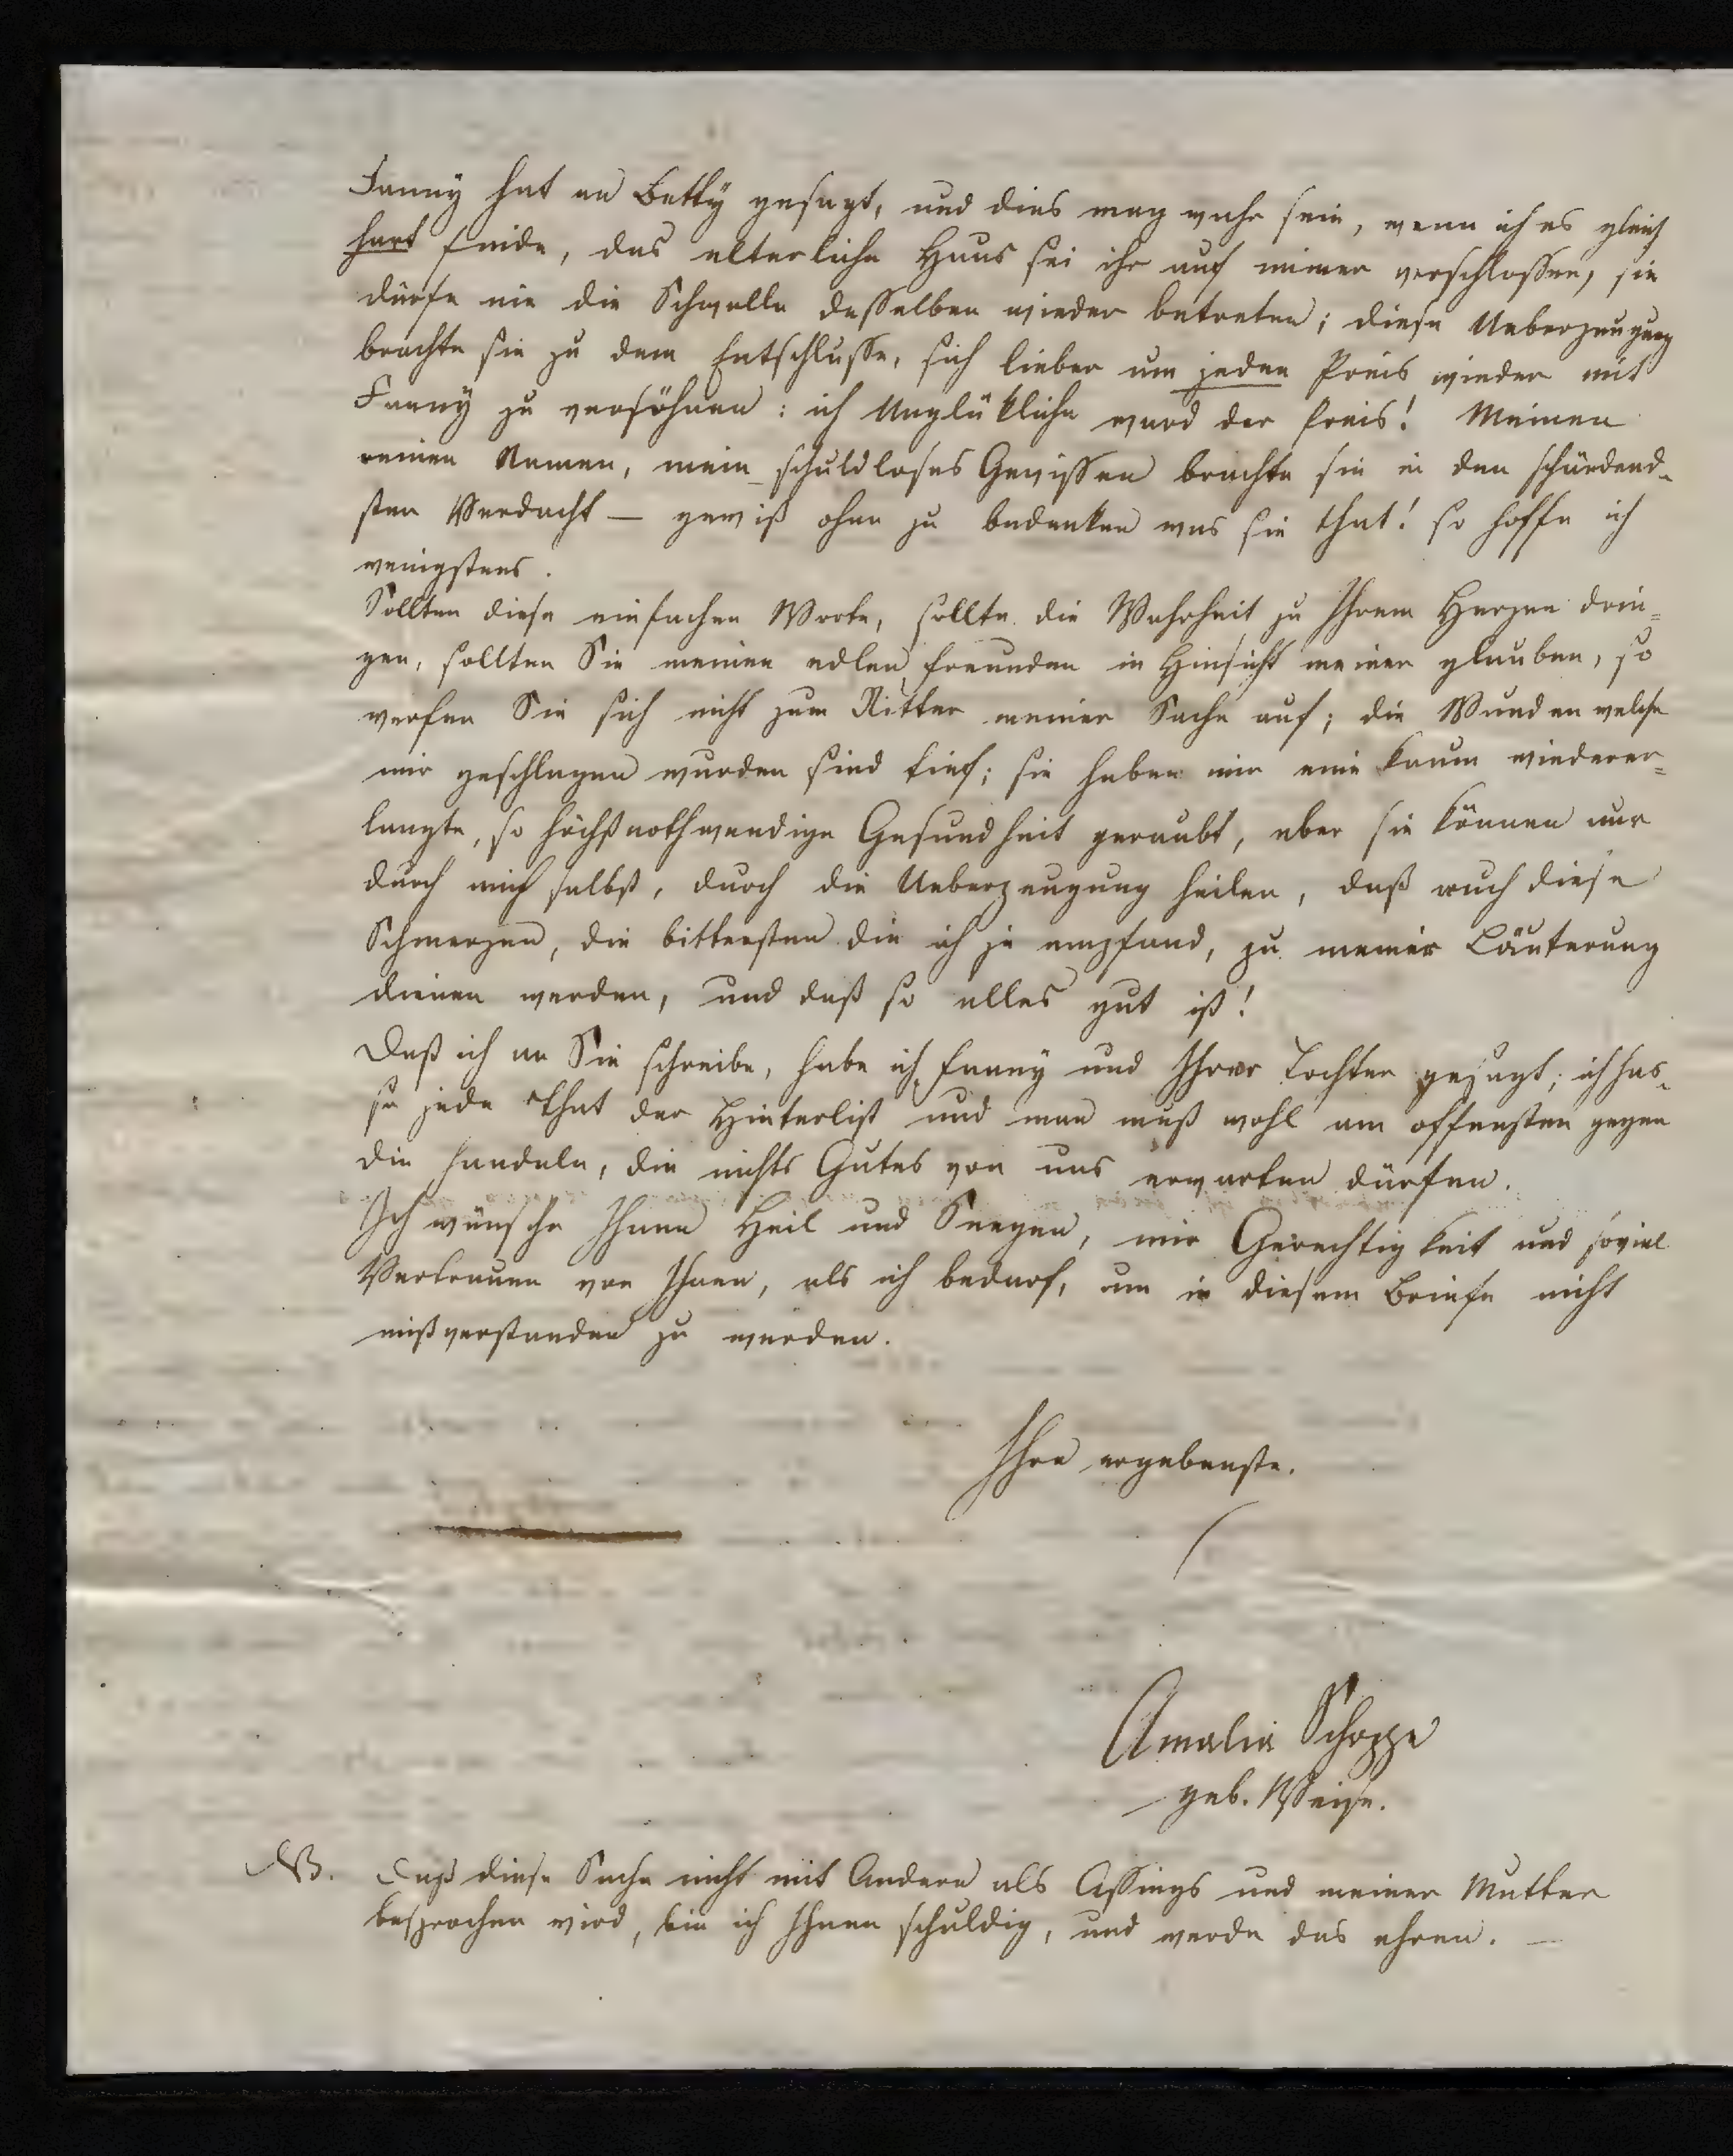 Fanny hat an Betty gesagt, und dies mag wahr sein, wenn ich es gleich
hart finde, das elterliche Haus sei ihr auf immer verschlossen, sie
dürfe nie die Schwelle desselben wieder betreten; diese Ueberzeugung
brachte sie zu dem Entschlusse, sich lieber um jeden Preis wieder mit
Fanny zu versöhnen: ich Unglükliche ward der Preis! Meinen
reinen Namen, mein schuldloses Gewissen brachte sie in den schändend-
sten Verdacht — gewiß ohne zu bedenken was sie that! so hoffe ich
wenigstens.
Sollten diese einfachen Worte, sollte die Wahrheit zu Ihrem Herzen drin=
gen, sollten Sie meinen edlen Freunden in Hinsicht meiner glauben, so
werfen Sie sich nicht zum Ritter meiner Sache auf; die Wunden welche
mir geschlagen wurden sind tief; sie haben mir eine kaum wiederer=
langte, so höchstnothwendige Gesundheit geraubt, aber sie können nur
durch mich selbst, durch die Ueberzeugung heilen, daß auch diese
Schmerzen, die bittersten die ich je empfand, zu meiner Läuterung
dienen werden, und daß so alles gut ist!
Daß ich an Sie schreibe, habe ich Fanny und Ihrer Tochter gesagt; ich has-
se jede That der Hinterlist und man muß wohl am offensten gegen
die handeln, die nichts Gutes von uns erwarten dürfen.
Ich wünsche Ihnen Heil und Seegen, mir Gerechtigkeit und soviel
Vertrauen von Ihnen, als ich bedarf, um in diesem Briefe nicht
mißverstanden zu werden.
Ihre ergebenste.
Amalia Schoppe
geb. Weise.
NB. Daß diese Sache nicht mit Andern als Assings und meiner Mutter
besprochen wird, bin ich Ihnen schuldig, und werde das ehren. —